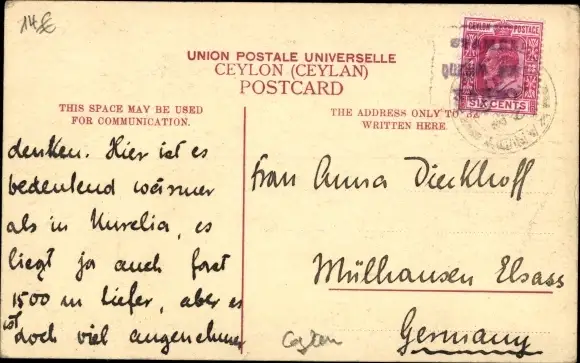 14€
UNION POSTALE UNIVERSELLE
CEYLON (CEYLAN)
POSTCARD
THIS SPACE MAY BE USED
FOR COMMUNICATION.
THE ADDRESS ONLY TO BE
WRITTEN HERE.
CEYLON POSTAGE
SIX CENTS
denken. Hier ist es
bedeutend wärmer
als in Nurelia, es
liegt ja auch fast
1500 m tiefer, aber es
ist doch viel angenehmer
Frau Anna Dieckhoff
Mülhausen Elsass
Germany
Ceylon